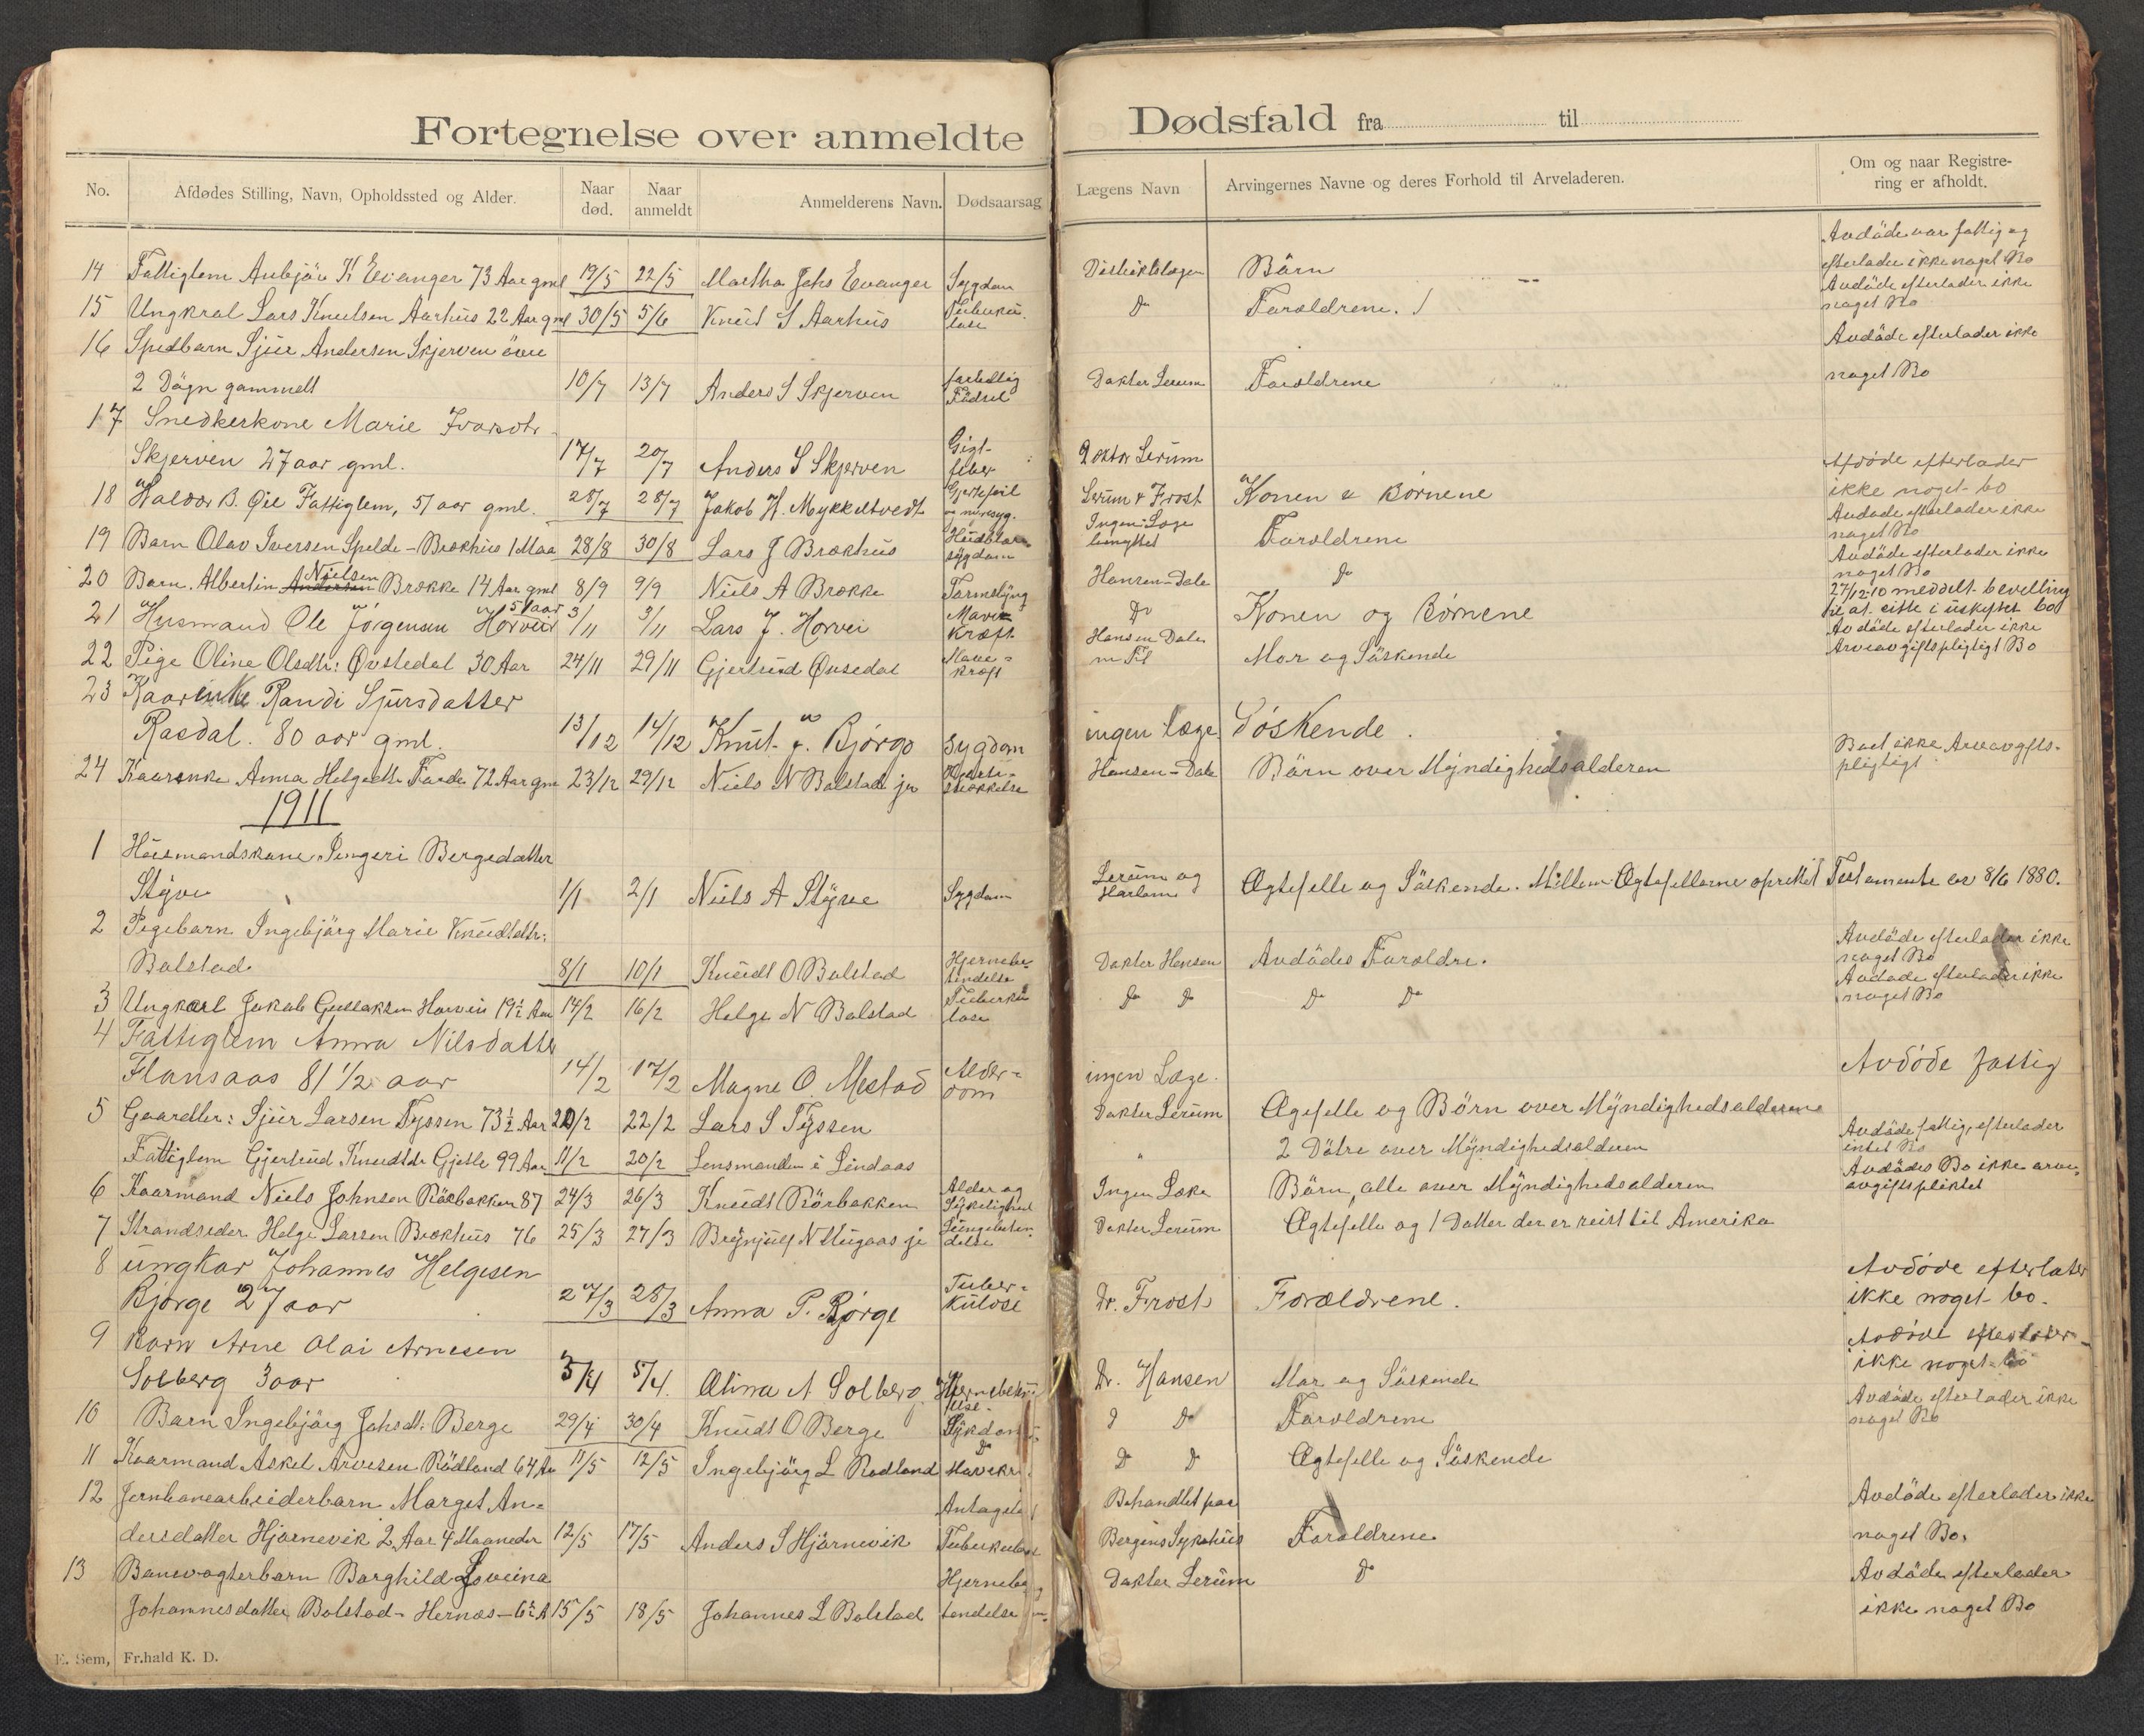 Fortegnelse over anmeldte Dødsfald fra til
No. Afdødes Stilling, Navn, Opholdssted og Alder. Naar død. Naar anmeldt Anmelderens Navn. Dødsaarsag Lægens Navn Arvingernes Navne og deres Forhold til Arveladeren. Om og naar Registrering er afholdt.
Avdöde var fattig og
14 Fattiglem Anbjör K Evanger 73 Aar gml 19/5 22/5 Martha Johs Evanger Sygdom Distriktslægen Börn efterlader ikke noget Bo
Avdöde efterlader ikke
15 Ungkral Lars Knutsen Aarhus 22 Aar gml 30/5 5/6 Knut S Aarhus Tuberkulose Do Foræeldrene. noget Bo
16 Spedbarn Sjur Andersen Skjerven övre Avdöde efterlader ikke
2 Dögn gammelt 10/7 13/7 Anders S Skjerven fortidlig Födsel Doktor Lerum Forældrene noget Bo
17 Snedkerkone Marie Ivarsdtr
Skjerven 27 aar gml. 17/7 20/7 Anders S Skjerven Gigtfeber Doktor Lerum
Afdöde efterlader
18 Haldor B. Øie Fattiglem, 51 aar gml. 28/7 28/7 Jakob H. Mykkeltvedt Hjertefeil og nyresyg. Lerum & Frost Konen & Börnene ikke noget bo
19 Barn Olav Iversen Spelde-Brækhus 1 Maa 28/8 30/8 Lars J Brækhus sygdom Ingen Læge benyttet Forældrene Avdöde efterlader ikke noget Bo
20 Barn Albertin Andersen Nielsen Brække 14 Aar gml 8/9 9/9 Niels A Brække Tarmslyng Hansen-Dale Do Avdöde efterlader ikke noget Bo
21 Husmand Ole Jörgensen Horvei 51 aar 3/11 3/11 Lars J. Horvei Mavekræft Do Konen og Börnene 27/12-10 meddelt bevilling til at sitte i uskiftet bo
22 Pige Oline Olsdtr: Øvstedal 30 Aar 24/11 29/11 Gjertrud Øvsedal Mavekræft Hansen Dale m Fl Mor og Söskende Avdöde efterlader ikke Arveavgiftspligtigt Bo
23 Kaarenke Randi Sjursdatter
Rasdal. 80 aar gml. 13/12 14/12 Knut J. Bjørgo sygdom ingen læge Söskende.
24 Kaarenke Anna Helgedtr Farde 72 Aar gml 23/12 29/12 Niels N Bolstad jr Hansen-Dale Börn over Myndighedsalderen Boet ikke Arveavgiftspligtigt
1911
1 Husmandskone Ingeri Bergedatter
Styve 1/1 2/1 Niels A Styve Sygdom Lerum og Ægtefelle og Söskende. Mellem Ægtefellerne oprettet Testamente av 8/6 1880.
2 Pigebarn Ingebjörg Marie Knudtdtr:
Bolstad 8/1 10/1 Knudt O Bolstad Hjernebetændelse Doktor Hansen Avdödes Forældre. Avdöde efterlader ikke noget Bo
3 Ungkarl Jakob Gullaksen Horvei 19½ Aar 14/2 16/2 Helge N Bolstad Tuberkulose Do Do Do Do Avdöde efterlader ikke noget Bo
4 Fattiglem Anna Nilsdatter
Flansaas 81 1/2 aar 14/2 17/2 Magne O. Mestad Alderdom ingen Læge. Avdöde fattig
5 Gaardbr: Sjur Larsen Tyssen 73½ Aar 20/2 22/2 Lars S Tyssen Doktor Lerum Ægefelle og Börn over Myndighedsalderen
Fattiglem Gjertrud Knudtdtr Gjelle 99 Aar 11/2 20/2 Lensmanden i Lindaas " 2 Dötre over Myndighedsalderen Avdöde fattig, efterlader intet Bo
6 Kaarmand Niels Johnsen Rörbakken 87 24/3 26/3 Knudt Rörbakken Alder og Sykelighed Ingen Læke Börn, alle over Myndighedsalderen Avdödes Bo ikke arveavgiftspliktet
7 Strandseder Helge Larsen Brækhus 76 25/3 27/3 Brynjulf N Mugaas jr Lungebetendelse Doktor Lerum Ægtefelle og 1 Datter der er reist til Amerika
8 ungkar Johannes Helgesen
Bjørge 27 aar 27/3 28/3 Anna P. Bjørge Tuberkulose Dr. Frost Forældrene. Avdöde efterlater ikke noget bo.
9 Barn Arne Olai Arnesen
Solberg 3 aar 3/4 5/4. Olina A Solberg Dr. Hansen Mor og Söskende Avdöde efterlater ikke noget bo
10 Barn Ingebjörg Johsdtr Berge 29/4 30/4 Knudt O Berge Sykdom Do Do Forældrene Avdöde efterlader ikke noget Bo
11 Kaarmand Askel Arvesen Rödland 64 Aar 11/5 12/5 Ingebjörg L Rødland Do Do Ægtefelle og Söskende
12 Jernbanearbeiderbarn Marget An-
dersdatter Hjörnevik 2 Aar 4 Maaneder 12/5 17/5 Anders S Hjörnevik Antagelig Tuberkulose Behandlet paa Bergens Sykehus Forældrene Avdöde efterlader ikke noget Bo.
13 Banevogterbarn Borghild Lovina
Johannesdatter Bolstad-Hernæs-6½ A 15/5 18/5 Johannes L Bolstad Hjernebetendelse Doktor Lerum Do Avdöde efterlader ikke noget Bo
E. Sem, Fr.hald K. D.